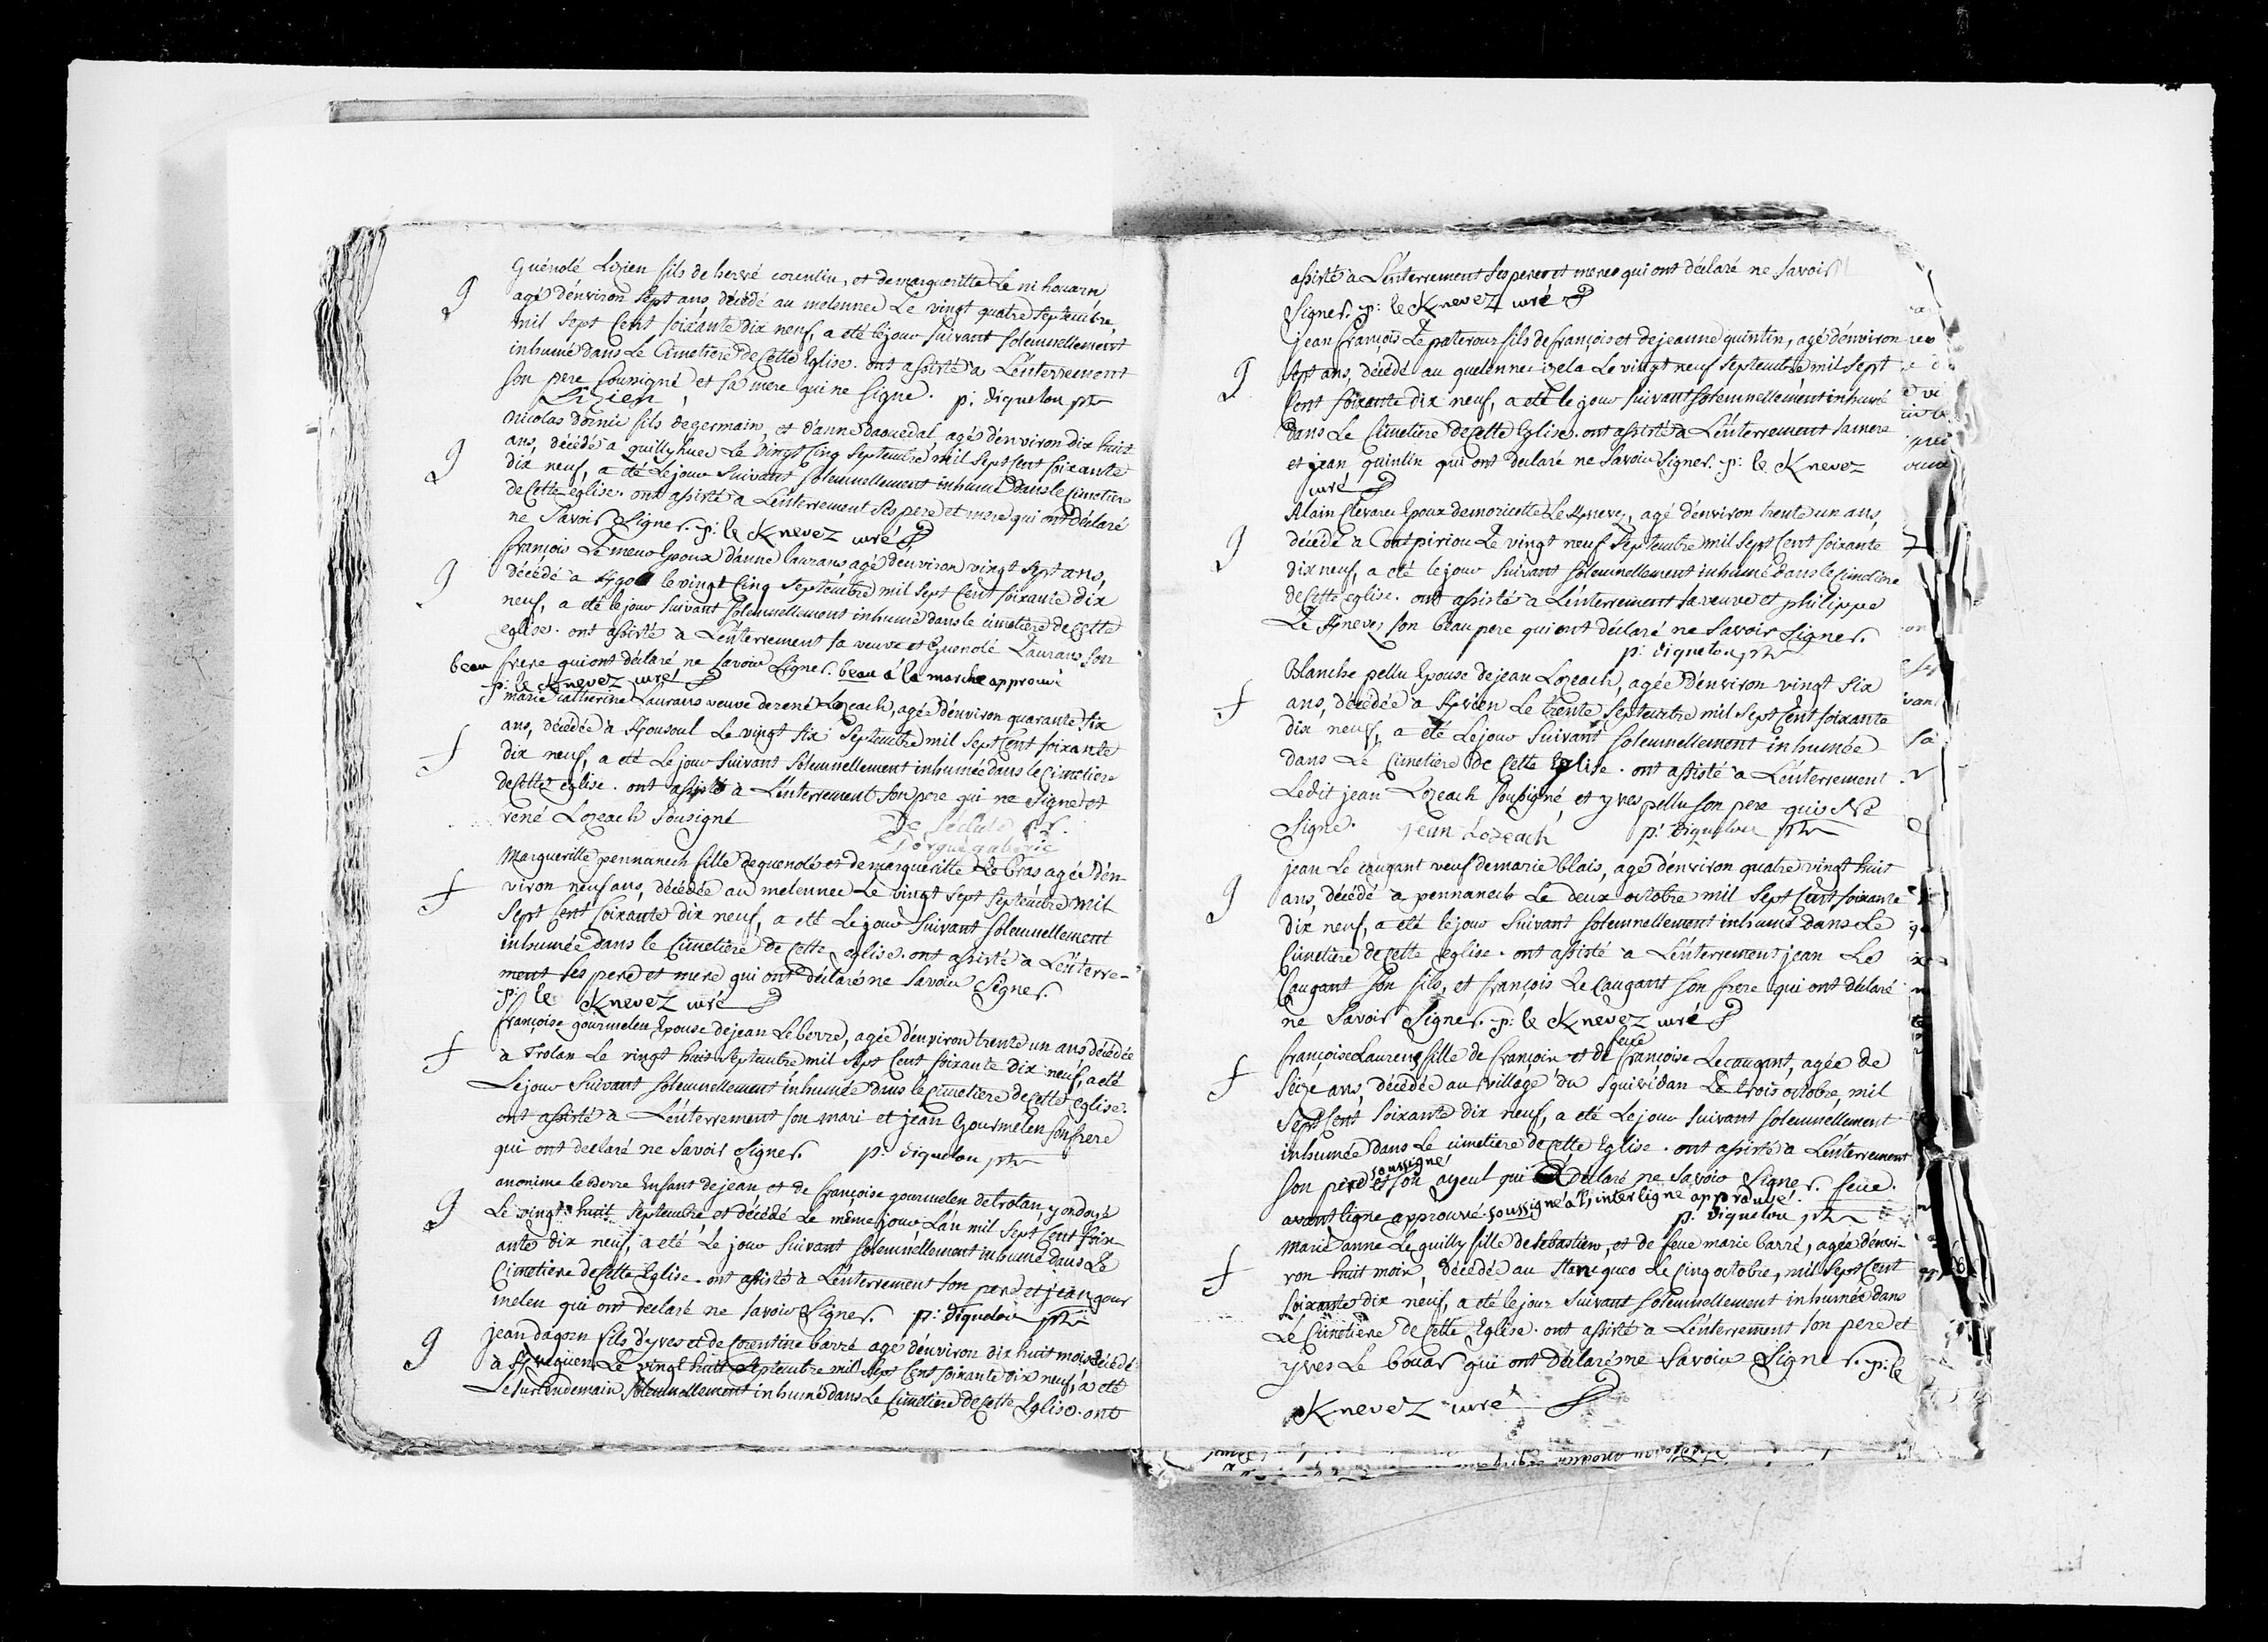 Guénolé Lizien fils de hervé corentin, et de margueritte Le nihouarn
g
agé d'environ sept ans, décédé au melennec Le vingt quatre septembre
mil sept cent soixante dix neuf, a été le jour suivant solemnellement
inhumé dans Le Cimetiere de cette Eglise. ont assisté a L'enterrement
son pere sousigné, et sa mere qui ne signe. p: diquelou ptre
Lizien
nicolas doirnic fils de germain, et d'anne daouedal, agé d'environ dix huit
g
ans, décédé a quillyhuec Le vingt cinq septembre mil sept cent soixante
dix neuf, a été Le jour suivant solemnellement inhumé dans le cimetiere
de cette eglise. ont assisté a L'enterrement ses pere et mere qui ont déclaré
ne savoir signer. p: le Knevez curé
françois Le meur Epoux d'anne laurans agé d'environ vingt sept ans,
g
décédé a le vingt cinq septembre mil sept cent soixante dix
neuf, a été le jour suivant solemnellement inhumé dans le cimetiere de cette
eglise. ont assisté a L'enterrement sa veuve et Guenolé Laurans son
beau frere qui ont déclaré ne savoir signer. beau á la marche approuvé
p: le Knevez curé
marie catherine Laurans veuve de rené Lozeach, agée d'environ quarante six
f
ans, décédée a Kousoul Le vingt six septembre mil sept cent soixante
dix neuf, a été Le jour suivant solemnellement inhumée dans le cimetiere
de cette eglise. ont assisté a L'enterrement son pere qui ne signe et
rené Lozeach sousigné
Margueritte pennanech fille de guenolé et de margueritte Le bras agée d'en-
f
viron neuf ans, décédée au melennec Le vingt sept septembre mil
sept cent soixante dix neuf, a été Le jour suivant solemnellement
inhumée dans le cimetiere de cette eglise. ont assisté a L'enterre-
ment ses pere et mere qui ont déclaré ne savoir signer.
p: le Knevez curé
françoise gourmelen Epouse de jean Le berre, agée d'environ trente un ans décédée
f
a Trolan Le vingt huit septembre mil sept cent soixante dix neuf, a été
Le jour suivant solemnellement inhumée dans le cimetiere de cette eglise.
ont assisté a L'enterrement son mari et jean Gourmelen son frere
qui ont declaré ne savoir signer. p: diquelou ptre
anonime le Berre Enfant de jean, et de françoise gourmelen de trolan, y ondoyé
g
Le vingt huit septembre et décédé Le même jour L'an mil sept cent soix-
ante dix neuf, a été Le jour suivant solemnellement inhumé dans Le
Cimetiere de cette Eglise. ont assisté a L'enterrement son pere et jean gour
melen qui ont declaré ne savoir signer. p: diquelou ptre
jean dagorn fils d'yves et de Corentine barré agé d'environ dix huit mois, décédé
g
a Le vingt huit septembre mil sept cent soixante dix neuf, a été
Le surlendemain solemnellement inhumé dans Le cimetiere de cette Eglise. ont
assisté a L'enterrement ses pere et mere qui ont déclaré ne savoir
signer. p: le Knevez curé
jean françois Le paterour fils de françois et de jeanne quintin, agé d'environ
g
sept ans, décédé au quelennec izela Le vingt neuf septembre mil sept
cent soixante dix neuf, a été le jour suivant solemnellement inhumé
dans Le Cimetiere de cette Eglise. ont assisté a L'enterrement sa mere
et jean quintin qui ont declaré ne savoir signer. p: le Knevez
curé
Alain Clevarec Epoux de moricette Le Knevez, agé d'environ trente un ans,
g
décédé a Coatpiriou Le vingt neuf septembre mil sept cent soixante
dix neuf, a été le jour suivant solemnellement inhumé dans le cimetiere
de cette eglise. ont assisté a L'enterrement sa veuve et philippe
Le Knevez son beau pere qui ont déclaré ne savoir signer.
p: diquelou ptre
Blanche pellu Epouse de jean Lozeach, agée d'environ vingt six
f
ans, décédée a Le trente septembre mil sept cent soixante
dix neuf, a été Le jour suivant solemnellement inhumée
dans Le cimetiere de cette Eglise. ont assisté a L'enterrement
Ledit jean Lozeach sousigné, et yves pellu son pere qui ne
signe. jean Lozeach p: diquelou ptre
jean Le caugant veuf de marie blais, agé d'environ quatre vingt huit
g
ans, décédé a pennanech Le deux octobre mil sept cent soixante
dix neuf, a été le jour suivant solemnellement inhumé dans Le
Cimetiere de cette eglise. ont assisté a L'enterrement jean Le
Caugant son fils, et françois Le Caugant son frere qui ont déclaré
ne savoir signer. p: le Knevez curé
feue
françoise Laurens fille de françois et de françoise Le caugant, agée de
f
seize ans, décédée au village du squividan Le trois octobre, mil
sept cent soixante dix neuf, a été Le jour suivant solemnellement
inhumée dans Le cimetiere de cette Eglise. ont assisté a L'enterrement
soussigné
son pere et son ayeul qui a déclaré ne savoir signer. feue.
avant ligne approuvé. soussigné à L'interligne approuvé.
p: diquelou ptre
Marie anne Le quilly fille de sebastien, et de feue marie barré, agée d'envi-
f
ron huit mois, décédée au stanquo Le cinq octobre, mil sept cent
soixante dix neuf, a été le jour suivant solemnellement inhumée dans
Le Cimetiere de cette Eglise. ont assisté a L'enterrement son pere et
yves Le bouar qui ont déclaré ne savoir signer. p: le
Knevez curé